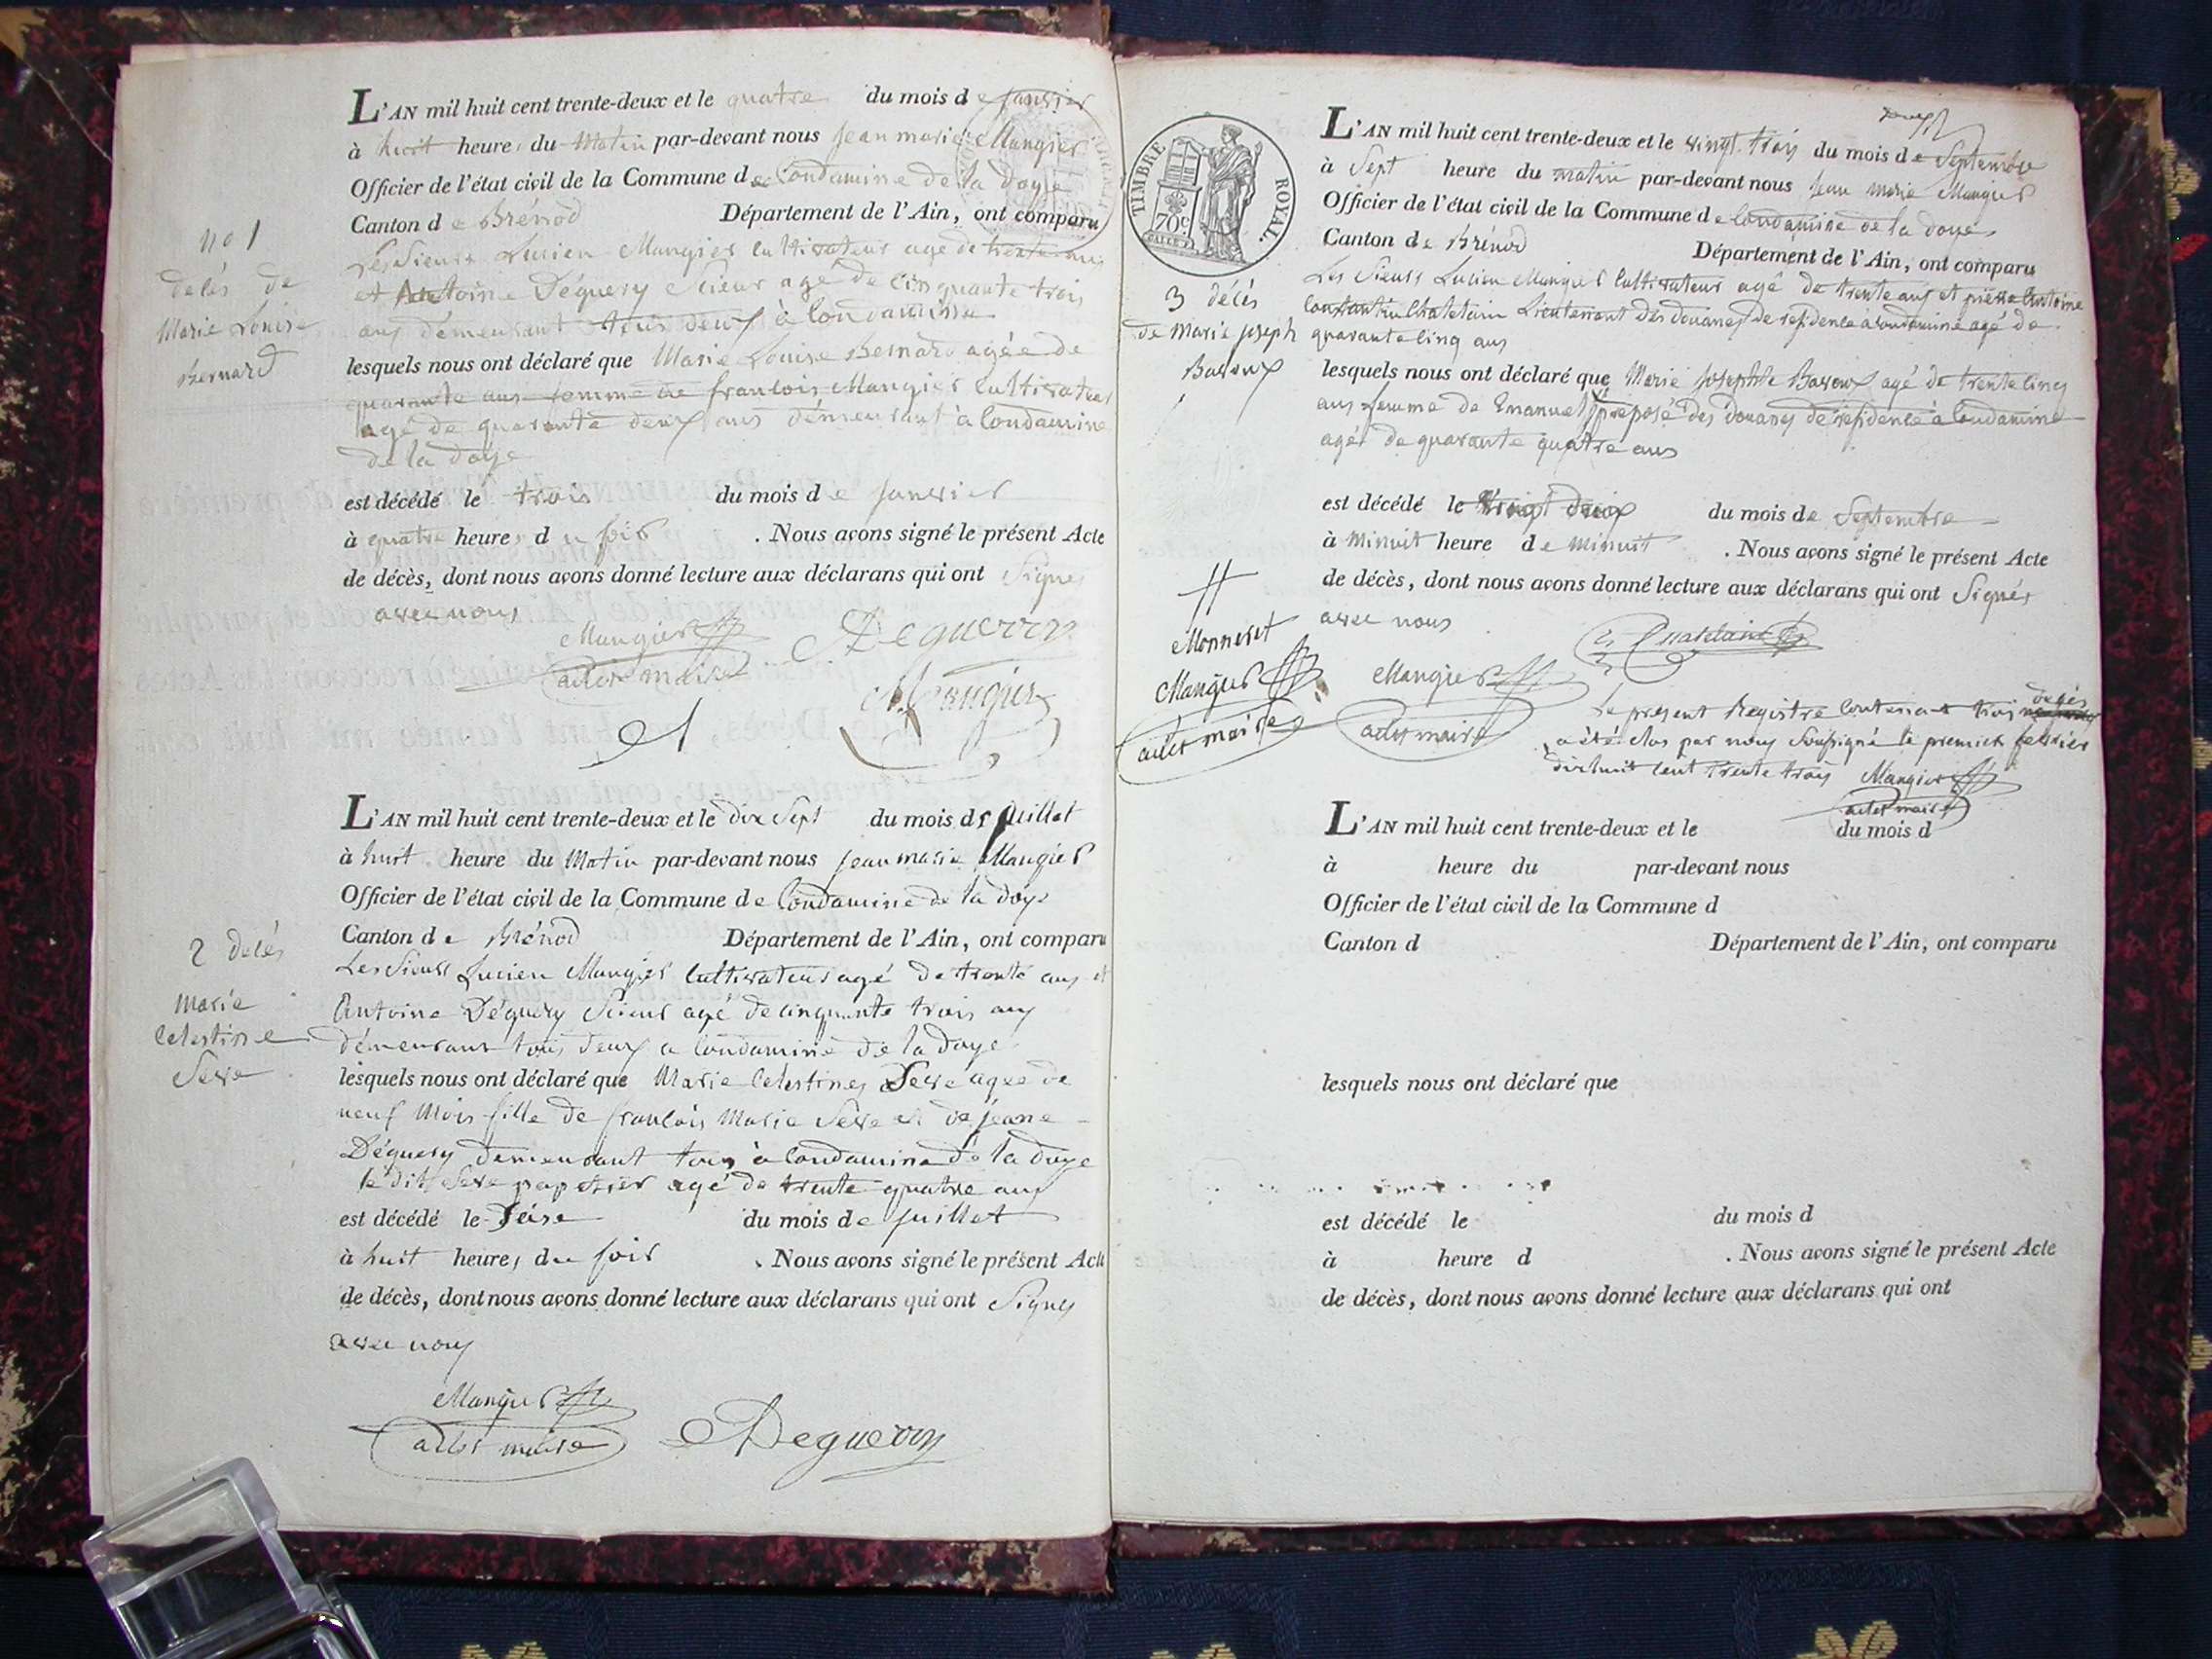 L'AN mil huit cent trente-deux et le quatre du mois de janvier
à huit heures du Matin par-devant nous jean marie Mangier
Officier de l'état civil de la Commune de Condamine de la doye
Canton de Brénod Département de l'Ain, ont comparu
les Sieurs Lucien Mangier Cultivateur agé de trente ans
et Antoine Déguery Scieur agé de Cinquante trois
ans démeurant tous deux à Condamine
no 1
decés de
Marie Louise
Bernard
lesquels nous ont déclaré que Marie Louise Bernard agée de
quarante ans femme de francois Mangier Cultivateur
agé de quarante deux ans démeurant à Condamine
de la doye
est décédé le trois du mois de janvier
à quatre heures du soir . Nous avons signé le présent Acte
de décès, dont nous avons donné lecture aux déclarans qui ont Signés
avec nous
Mangier Deguerry
adjt maire Mangier
L'AN mil huit cent trente-deux et le dix Sept du mois de juillet
à huit heure du Matin par-devant nous jean marie Mangier
Officier de l'état civil de la Commune de Condamine de la doye
Canton de Brénod Département de l'Ain, ont comparu
Les Sieurs Lucien Mangier Cultivateur agé de trente ans et
Antoine Déguery Scieur agé de cinquante trois ans
démeurant tous deux a Condamine de la doye
2 decés
Marie
Celestine
Seve
lesquels nous ont déclaré que Marie Celestines Seve agée de
neuf Mois fille de francois Marie Seve et de jeane
Déguery demeurant tous à Condamine de la doye
le dit Seve papetier agé de trente quatre ans
est décédé le Séise du mois de juillet
à huit heures du soir . Nous avons signé le présent Acte
de décès, dont nous avons donné lecture aux déclarans qui ont Signés
avec nous
Mangier
adjt maire Deguerry
TIMBRE ROYAL.
70c.
L'AN mil huit cent trente-deux et le vingt trois du mois de Septembre
à Sept heure du matin par-devant nous jean marie Mangier
Officier de l'état civil de la Commune de Condamine de la doye
Canton de Brénod Département de l'Ain, ont comparu
Les Sieurs Lucien Mangier Cultivateur agé de trente ans et pierre Antoine
Constantin Chatelain Lieutenant des douanes de residence à Condamine agé de
quarante Cinq ans
3 décés
de Marie joseph
Baroux
lesquels nous ont déclaré que Marie josephte Baroux agé de trente Cinq
ans femme de Emanuel préposé des Douanes de residence à Condamine
agé de quarante quatre ans
est décédé le Vingt deux du mois de Septembre
à Minuit heure de Minuit . Nous avons signé le présent Acte
de décès, dont nous avons donné lecture aux déclarans qui ont Signés
avec nous
Monneret
Mangier
adjt maire
Chatelain
Mangier
adjt maire
Le present Registre Contenant trois décés
a été Clos par nous Soussigné le premier fevrier
dix huit Cent trente trois Mangier
adjt maire
L'AN mil huit cent trente-deux et le du mois d
à heure du par-devant nous
Officier de l'état civil de la Commune d
Canton d Département de l'Ain, ont comparu
lesquels nous ont déclaré que
est décédé le du mois d
à heure d . Nous avons signé le présent Acte
de décès, dont nous avons donné lecture aux déclarans qui ont